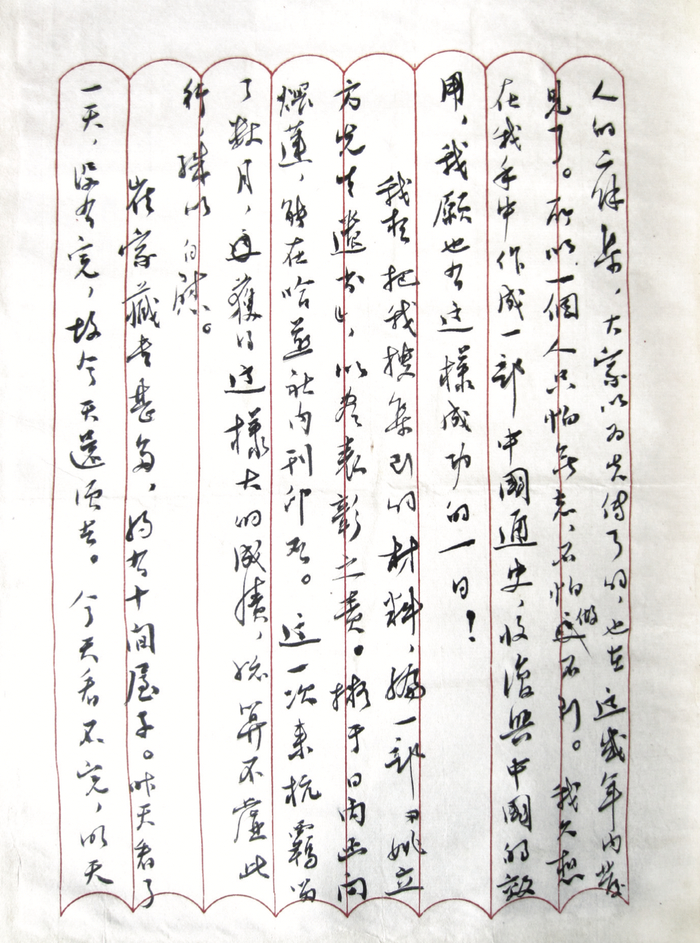 人的二餘集，大家以为失傳了的，也在這幾年内發
見了。所以一個人只怕無志，不怕做不到。我久想
在我手中作成一部中國通史，收復興中國的效
用，我願也有這樣成功的一日！
我想把我搜集到的材料，編一部『姚立
方先生遺書』，以盡表彰之責。擬于日内函问
煨蓮，能在哈燕社内刊印否。這一次来杭羈留
了数月，迺獲得這樣大的成績，总算不虚此
行，殊以自慰。
崔家藏書甚多，約有十間屋子。昨天看了
一天，没有完，故今天還須去。今天看不完，明天